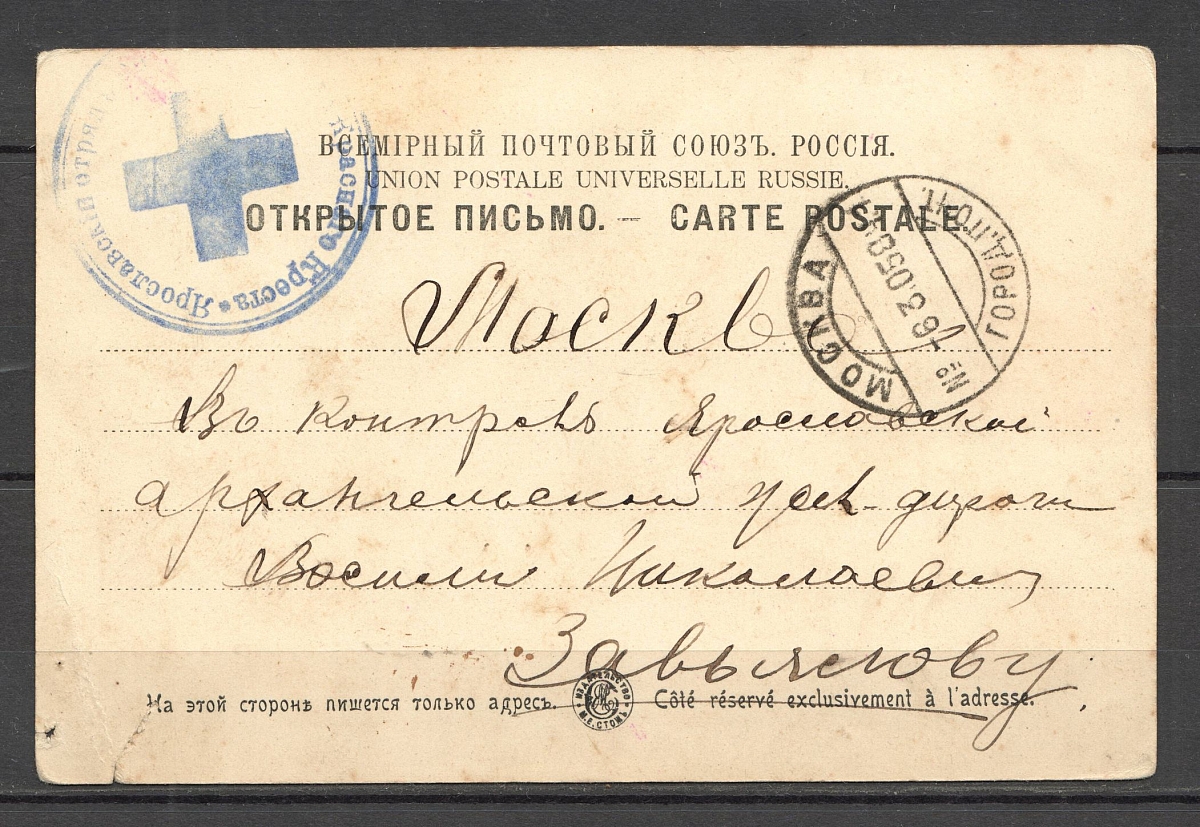 ВСЕМІРНЫЙ ПОЧТОВЫЙ СОЮЗЪ. РОССІЯ.
UNION POSTALE UNIVERSELLE RUSSIE.
ОТКРЫТОЕ ПИСЬМО. — CARTE POSTALE.
Ярославскій отрядъ Краснаго Креста
МОСКВА
6.3.05
ГОРОД. ПОЧТ.
Москва
Въ Контроль Ярославской
Архангельской жел. дороги
Василію Николаевичу
Завьялову
На этой сторонѣ пишется только адресъ.
ИЗДАТЕЛЬСТВО М.Е.СТОМЪ
Côté réservé exclusivement à l'adresse.